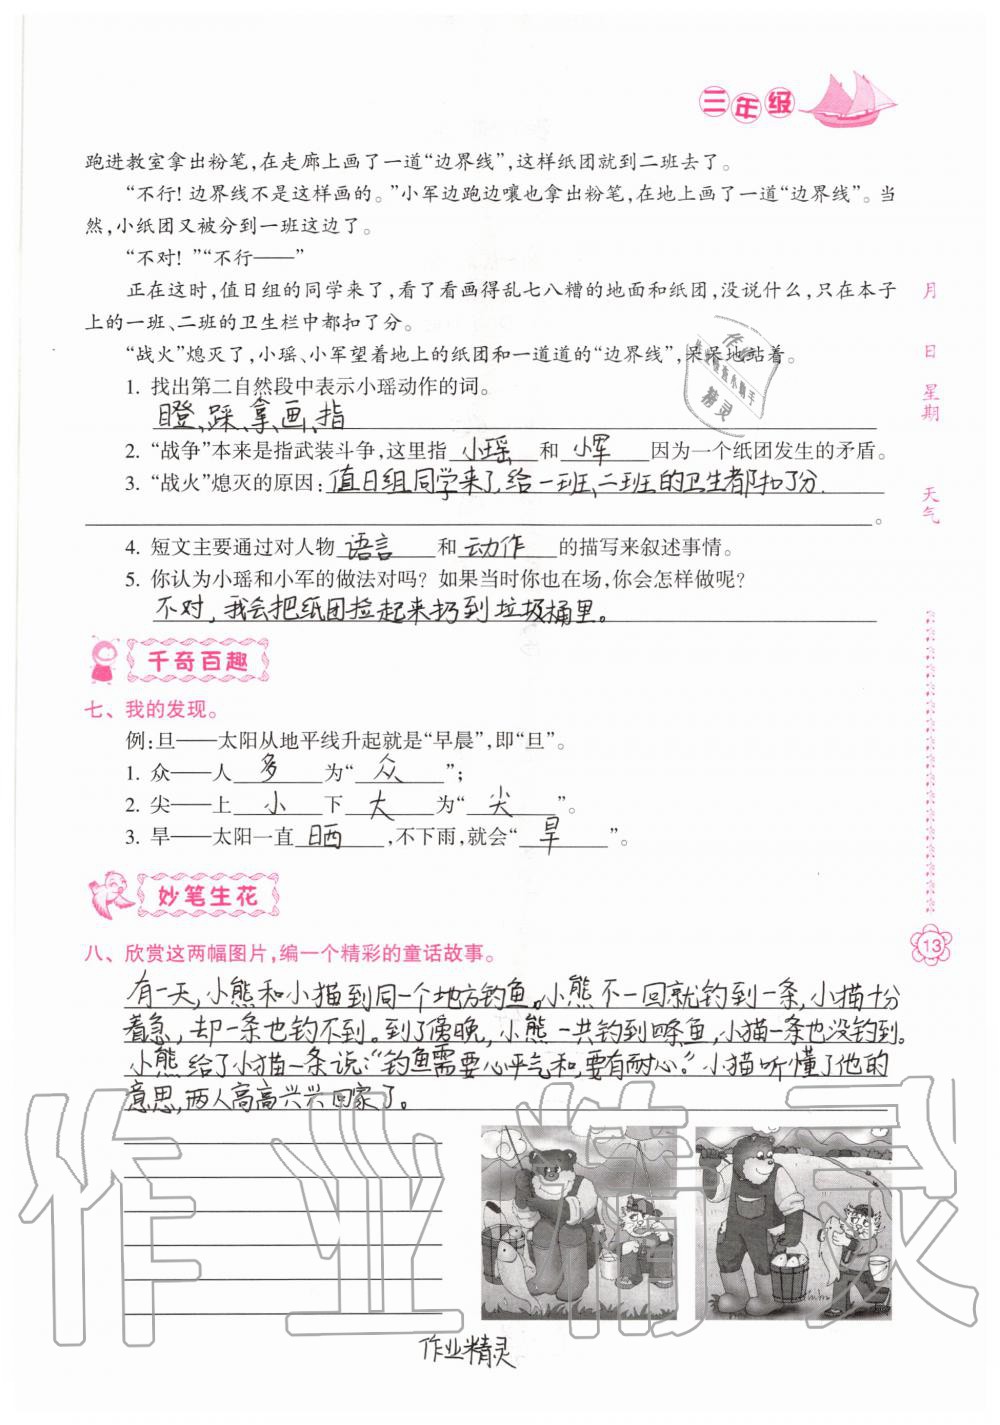 三年级
跑进教室拿出粉笔,在走廊上画了一道“边界线”,这样纸团就到二班去了。
“不行!边界线不是这样画的。”小军边跑边嚷也拿出粉笔,在地上画了一道“边界线”。当
然,小纸团又被分到一班这边了。
“不对!”“不行——”
正在这时,值日组的同学来了,看了看画得乱七八糟的地面和纸团,没说什么,只在本子
上的一班、二班的卫生栏中都扣了分。
“战火”熄灭了,小瑶、小军望着地上的纸团和一道道的“边界线”,呆呆地站着。
1. 找出第二自然段中表示小瑶动作的词。
瞪、踩、拿、画、指
2. “战争”本来是指武装斗争,这里指 小瑶 和 小军 因为一个纸团发生的矛盾。
3. “战火”熄灭的原因:值日组同学来了,给一班、二班的卫生都扣了分.
。
4. 短文主要通过对人物 语言 和 动作 的描写来叙述事情。
5. 你认为小瑶和小军的做法对吗?如果当时你也在场,你会怎样做呢?
不对,我会把纸团捡起来扔到垃圾桶里。
千奇百趣
七、我的发现。
例:旦——太阳从地平线升起就是“早晨”,即“旦”。
1. 众——人 多 为“ 众 ”;
2. 尖——上 小 下 大 为“ 尖 ”。
3. 旱——太阳一直 晒 ,不下雨,就会“ 旱 ”。
妙笔生花
八、欣赏这两幅图片,编一个精彩的童话故事。
有一天,小熊和小猫到同一个地方钓鱼。小熊不一回就钓到一条,小猫十分
着急,却一条也钓不到。到了傍晚,小熊一共钓到四条鱼,小猫一条也没钓到。
小熊给了小猫一条说:“钓鱼需要心平气和,要有耐心。”小猫听懂了他的
意思,两人高高兴兴回家了。
作业精灵
月
日
星期
天气
13
作业精灵